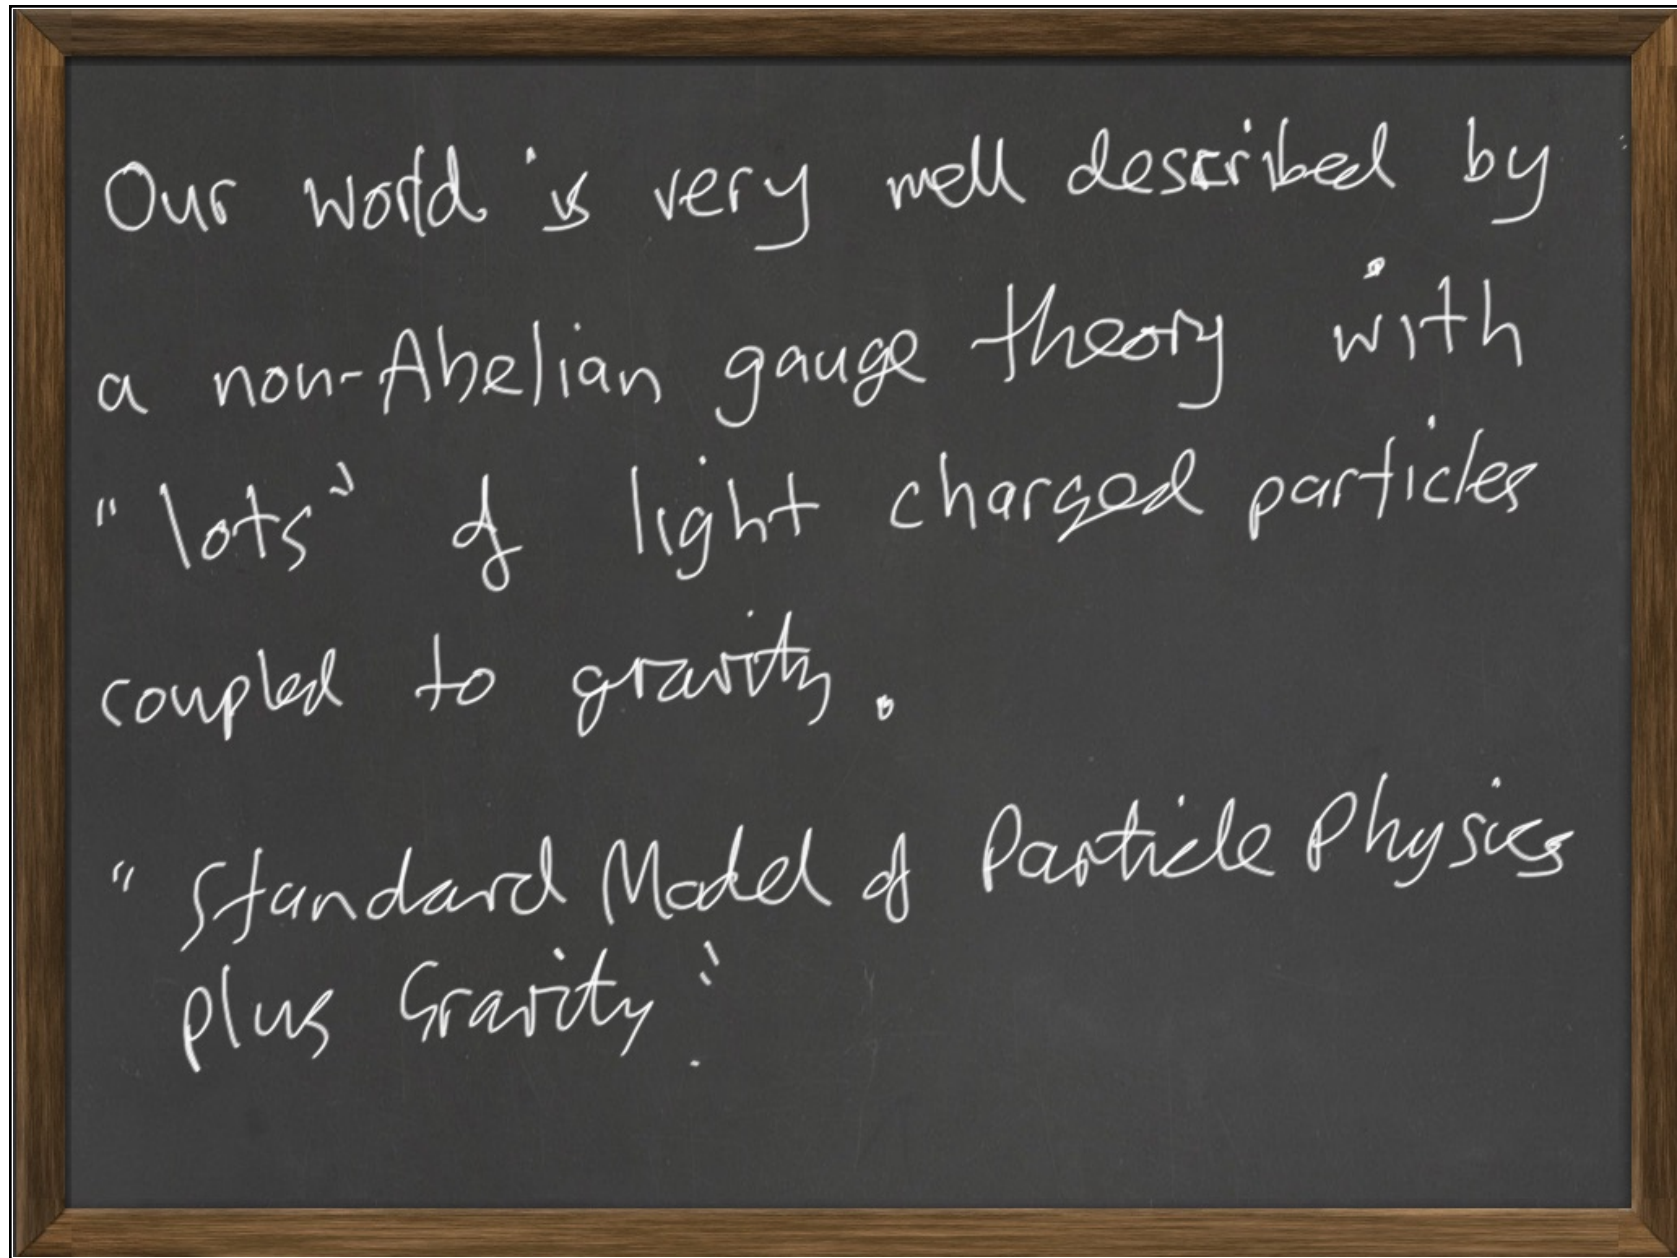 Our world is very well described by
a non-Abelian gauge theory with
"lots" of light charged particles
coupled to gravity.
"Standard Model of Particle Physics
plus Gravity".